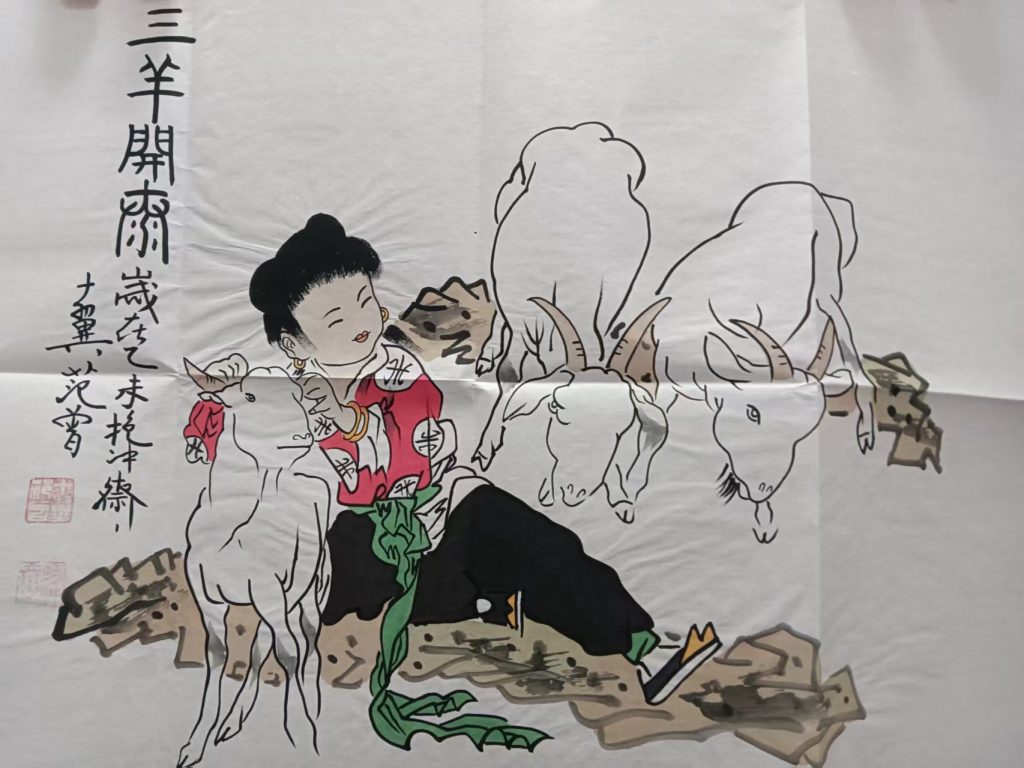 三羊開泰
歲在乙未抱冲齋
十翼范曾